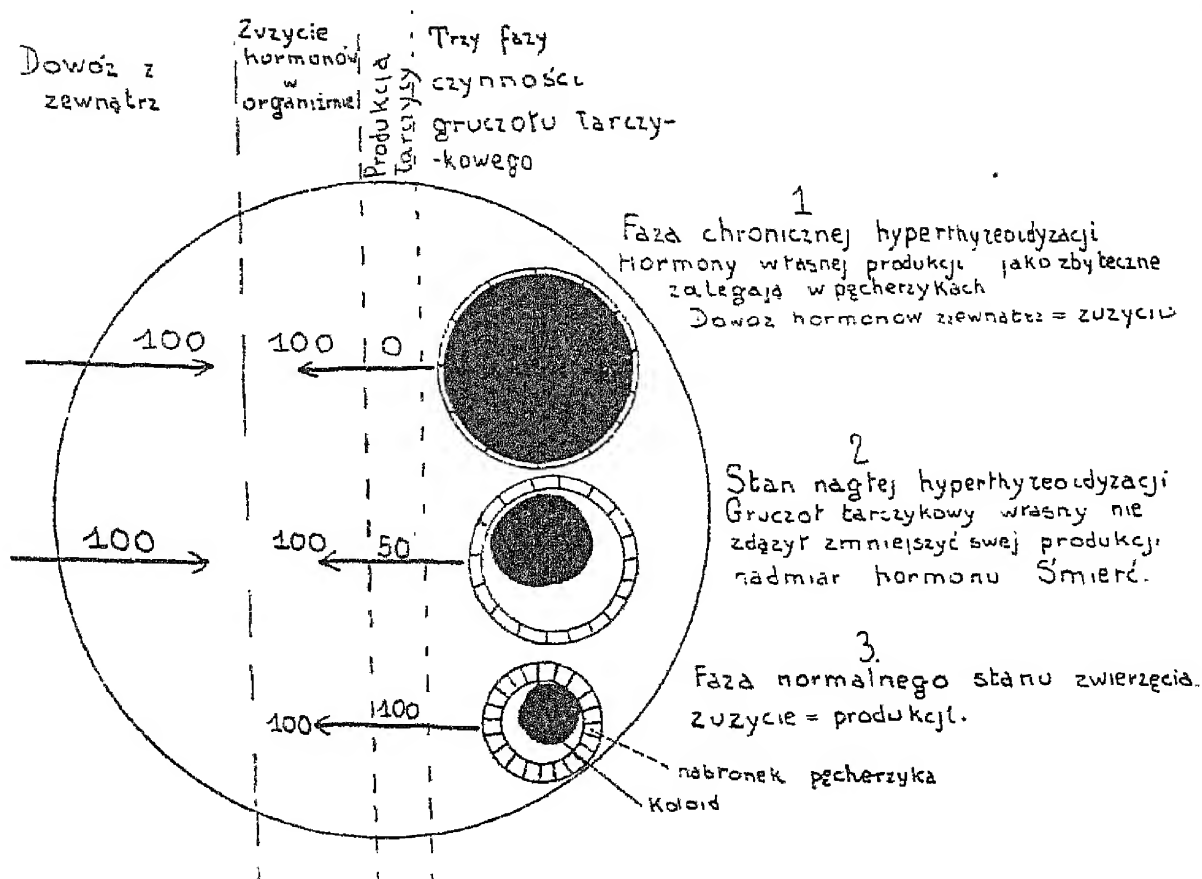 Dowóz z
zewnątrz
Zużycie
hormonów
w
organizmie
Produkcja
tarczycy
Trzy fazy
czynności
gruczołu tarczy-
-kowego
1
Faza chronicznej hyperthyreoidyzacji
Hormony własnej produkcji jako zbyteczne
zalegają w pęcherzykach
Dowóz hormonów zzewnątrz = zużyciu
100
100
0
2
Stan nagłej hyperthyreoidyzacji
Gruczoł tarczykowy własny nie
zdążył zmniejszyć swej produkcji
nadmiar hormonu Śmierć.
100
100
50
3.
Faza normalnego stanu zwierzęcia.
zużycie = produkcji.
100
100
nabłonek pęcherzyka
Koloid